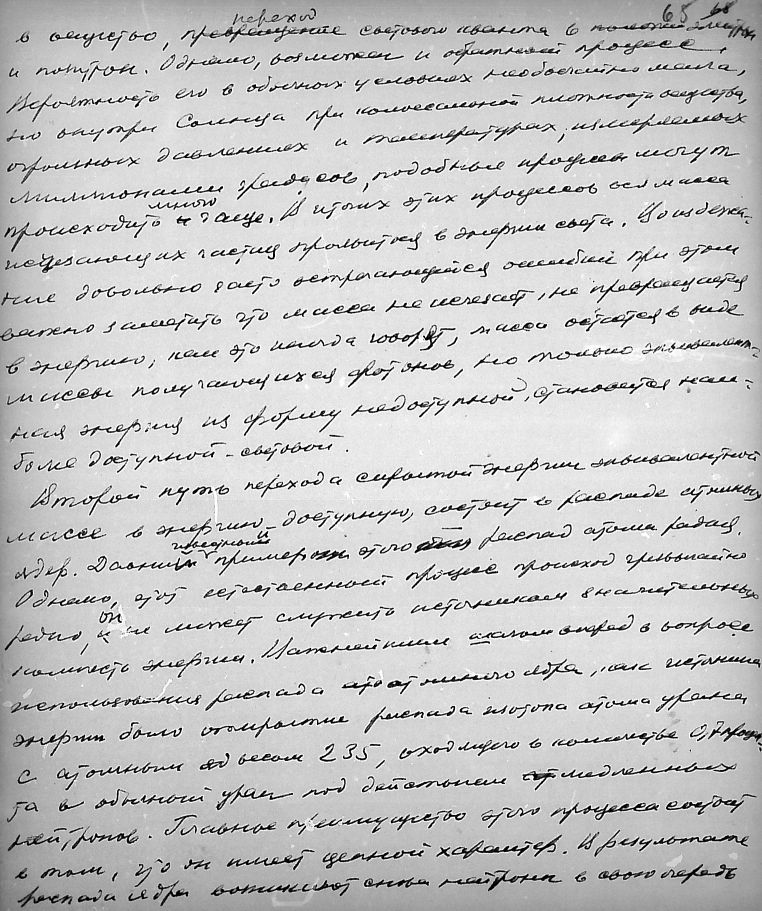 65 68
переход
в вещество, превращение светового кванта в электрон
и позитрон. Однако, возможен и обратный процесс.
Вероятность его в обычных условиях необычайно мала,
но внутри Солнца при колоссальной плотности вещества,
огромных давлениях и температурах, измеряемых
миллионами градусов, подобные процессы могут
много
происходить и чаще. В итоге этих процессов вся масса
исчезающих частиц проявится в энергии света. Во избежа-
ние довольно часто встречающейся ошибки при этом
важно заметить что масса не исчезает, не превращается
в энергию, как это иногда говорят, масса остается в виде
массы получающихся фотонов, но только эквивалент-
ная энергия из формы недоступной, становится наи-
более доступной - световой.
Второй путь перехода скрытой энергии эквивалентной
массе в энергию доступную, состоит в распаде атомных
известный
ядер. Давний пример этого распад атома радия.
Однако, этот естественный процесс происход чрезвычайно
он
редко, и не может служить источником значительных
количеств энергии. Важнейшим шагом вперед в вопросе
использования распада атомного ядра, как источника
энергии было открытие распада изотопа атома урана
с атомным весом 235, входящего в количестве 0,7 процен-
та в обычный уран под действием медленных
нейтронов. Главное преимущество этого процесса состоит
в том, что он имеет цепной характер. В результате
распада ядра возникают снова нейтроны в свою очередь